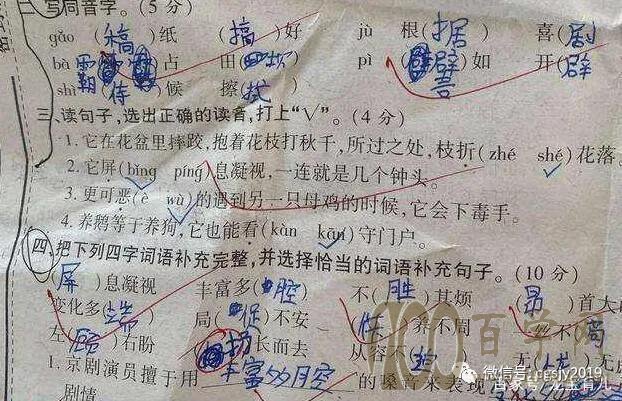 写同音字。(5分)
gǎo (稿)纸 (搞)好 jù 根(据) 喜(剧)
bà (霸)占 田(坝) pì (譬)如 开(辟)
shì (侍)候 擦(拭)
三、读句子,选出正确的读音,打上“√”。(4分)
1. 它在花盆里摔跤,抱着花枝打秋千,所过之处,枝折(zhé shé)花落。
2. 它屏(bǐng píng)息凝视,一连就是几个钟头。
3. 更可恶(è wù)的遇到另一只母鸡的时候,它会下毒手。
4. 养鹅等于养狗,它也能看(kàn kān)守门户。
四、把下列四字词语补充完整,并选择恰当的词语补充句子。(10分)
(屏)息凝视 丰富多(腔) 不(胜)其烦 (昂)首大
变化多(端) 局(促)不安 (供)养不周 一丝不(苟)
左(顾)右盼 (扬)长而去 从容不 无
1. 京剧演员擅于用 丰富多腔 的嗓音来表现
剧情
100百学网
微信号: ccsjy2019
百家号